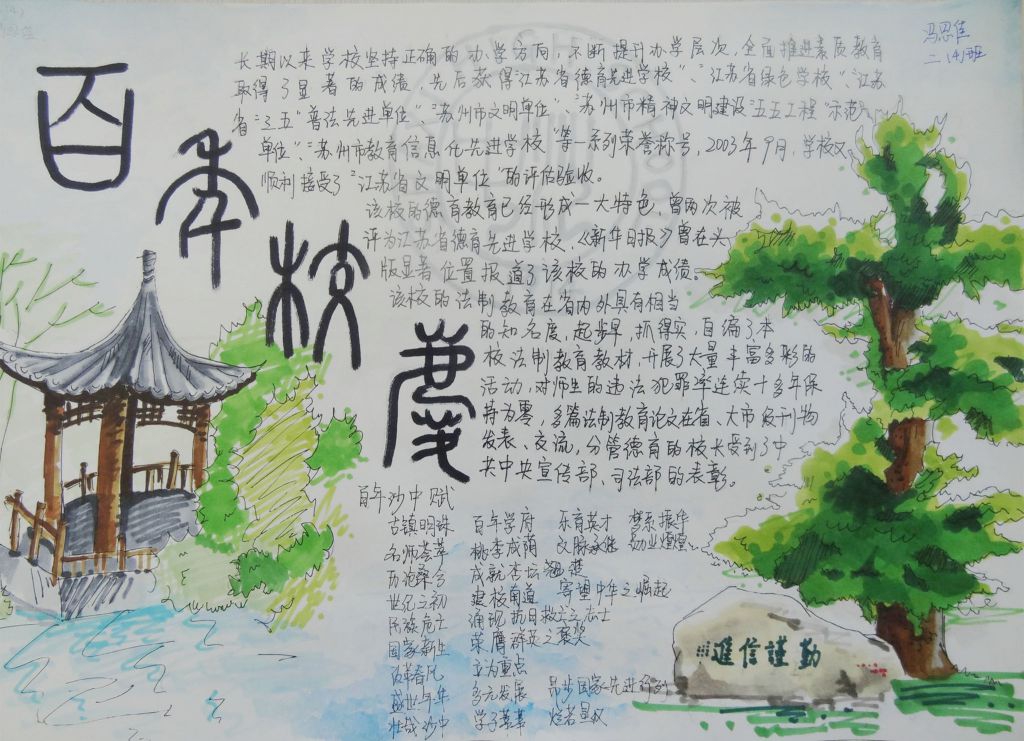 百年校庆
冯恩佳
二(4)班
长期以来学校坚持正确的办学方向，不断提升办学层次，全面推进素质教育
取得了显著的成绩，先后获得江苏省德育先进学校"、"江苏省绿色学校"、"江苏
省"三五"普法先进单位"、"苏州市文明单位"、"苏州市精神文明建设"五五工程"示范
单位"、"苏州市教育信息化先进学校"等一系列荣誉称号，2003年9月，学校又
顺利接受了"江苏省文明单位"的评估验收。
该校的德育教育已经形成一大特色，曾两次被
评为江苏省德育先进学校，《新华日报》曾在头
版显著位置报道了该校的办学成绩。
该校的法制教育在省内外具有相当
的知名度，起步早，抓得实，自编了本
校法制教育教材，开展了大量丰富多彩的
活动，对师生的违法犯罪率连续十多年保
持为零，多篇法制教育论文在省、大市级刊物
发表、交流，分管德育的校长受到了中
共中央宣传部、司法部的表彰。
百年沙中赋
古镇明珠 百年学府 乐育英才 梦系振华
名师荟萃 桃李成荫 文脉承继 功业煌煌
历沧桑 成就杏坛
世纪之初 建校甪道 寄望中华之崛起
民族危亡 涌现抗日救亡之志士
国家新生 荣膺群英之褒奖
改革春风 立为重点
盛世年华 多元发展 昂步国家先进行列
壮哉沙中 学子莘莘
勤謹信進